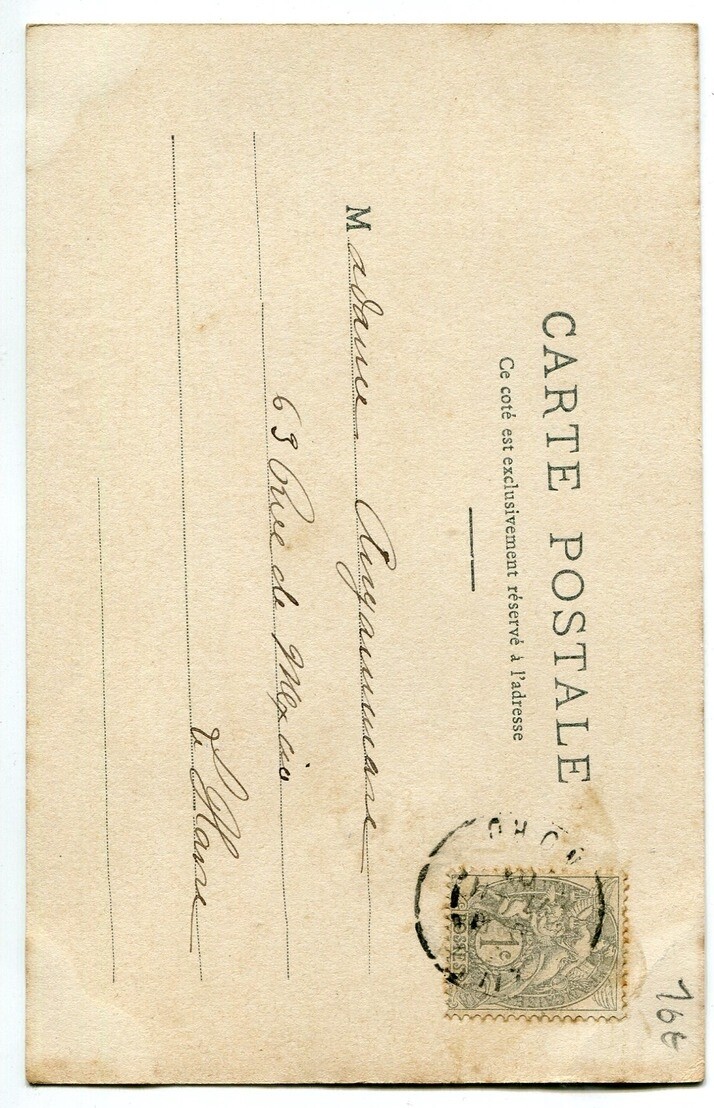 CARTE POSTALE
Ce coté est exclusivement réservé à l'adresse
Madame
63 Rue de Mexico
Le Havre
1c
POSTES
76